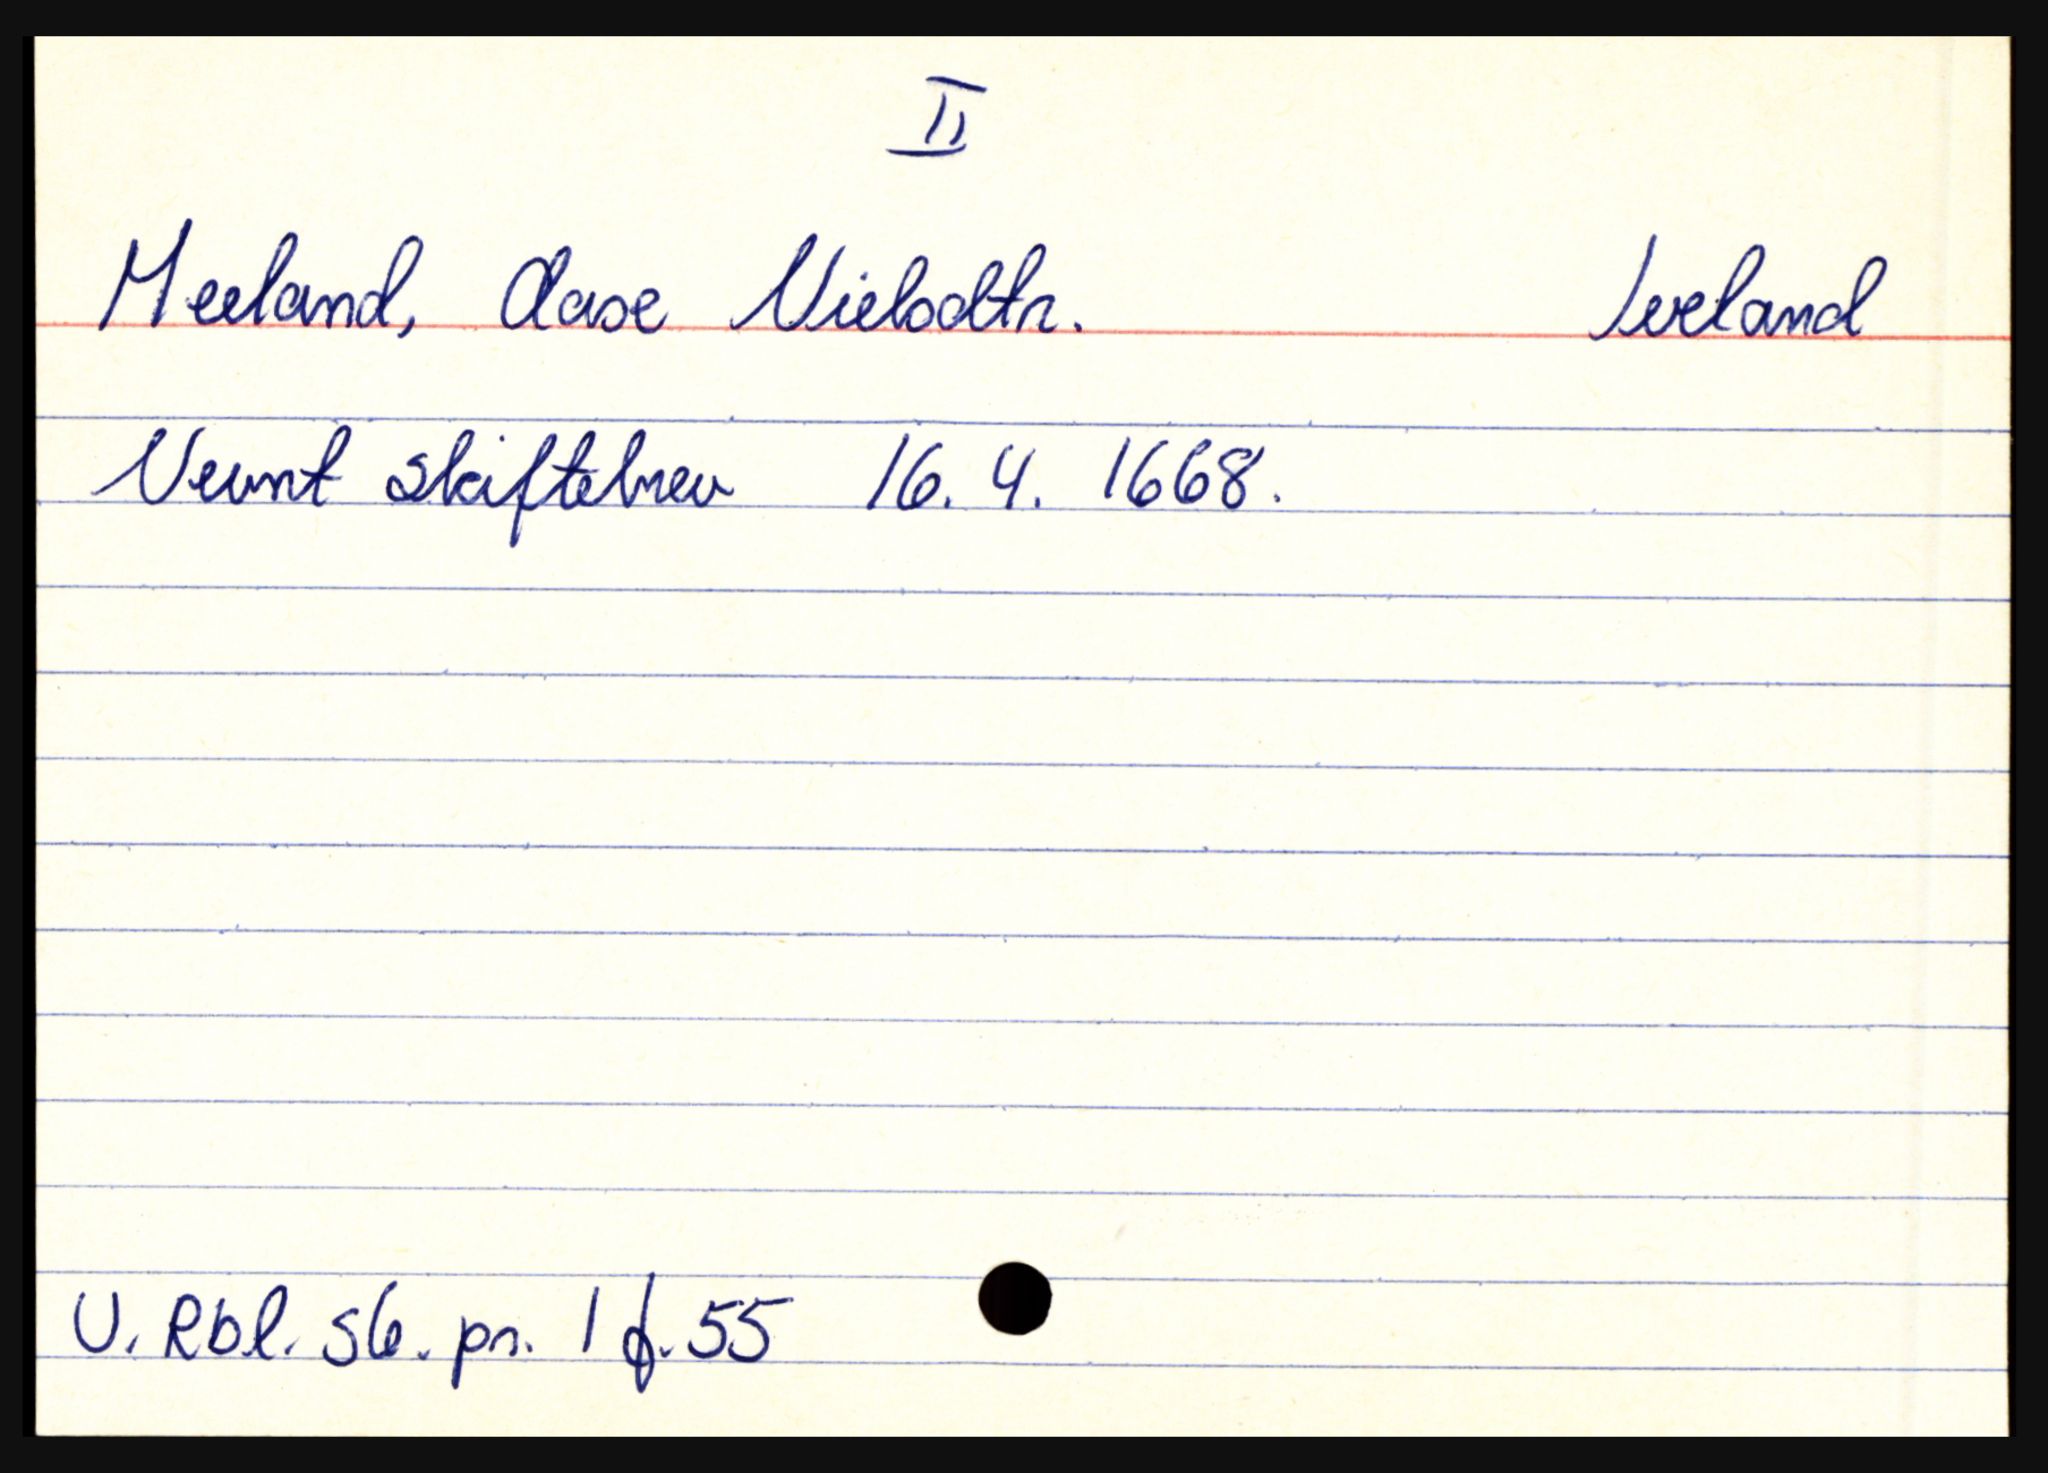 II
Meeland, Aase Nielsdtr. Iveland
Nevnt skiftebrev 16. 4. 1668.
U. Rbl. sk. pr. 1 f. 55